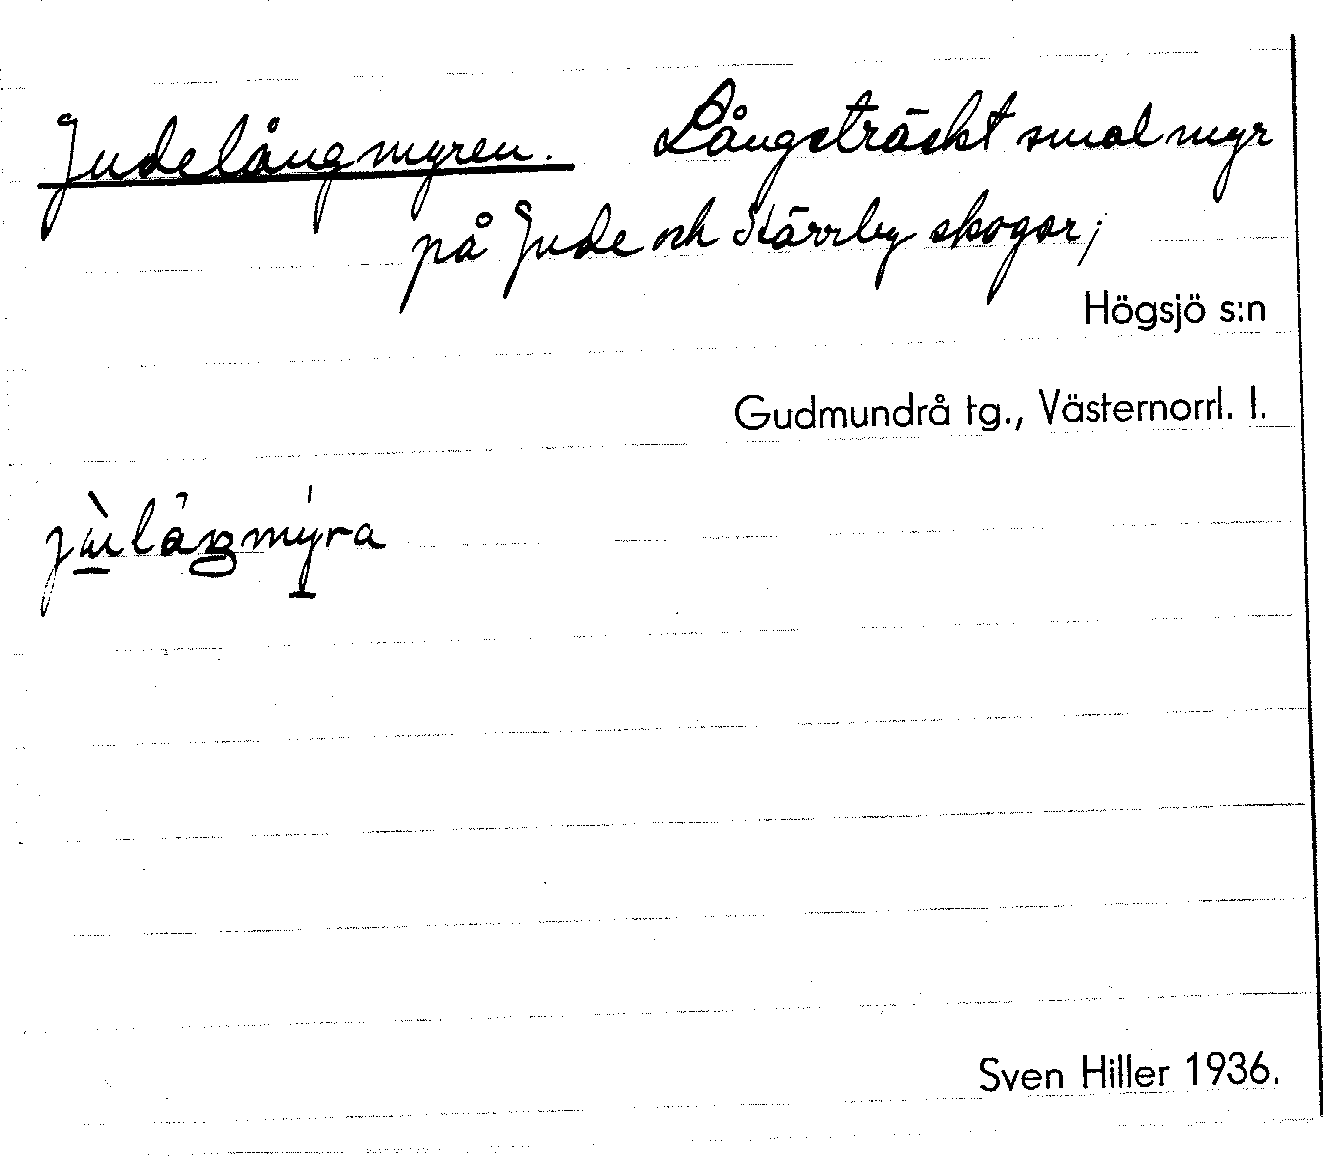 Judelångmyren. Långsträckt smal myr
på Jude och Kärrby skogar;
Högsjö s:n
Gudmundrå tg., Västernorrl. l.
Sven Hiller 1936.